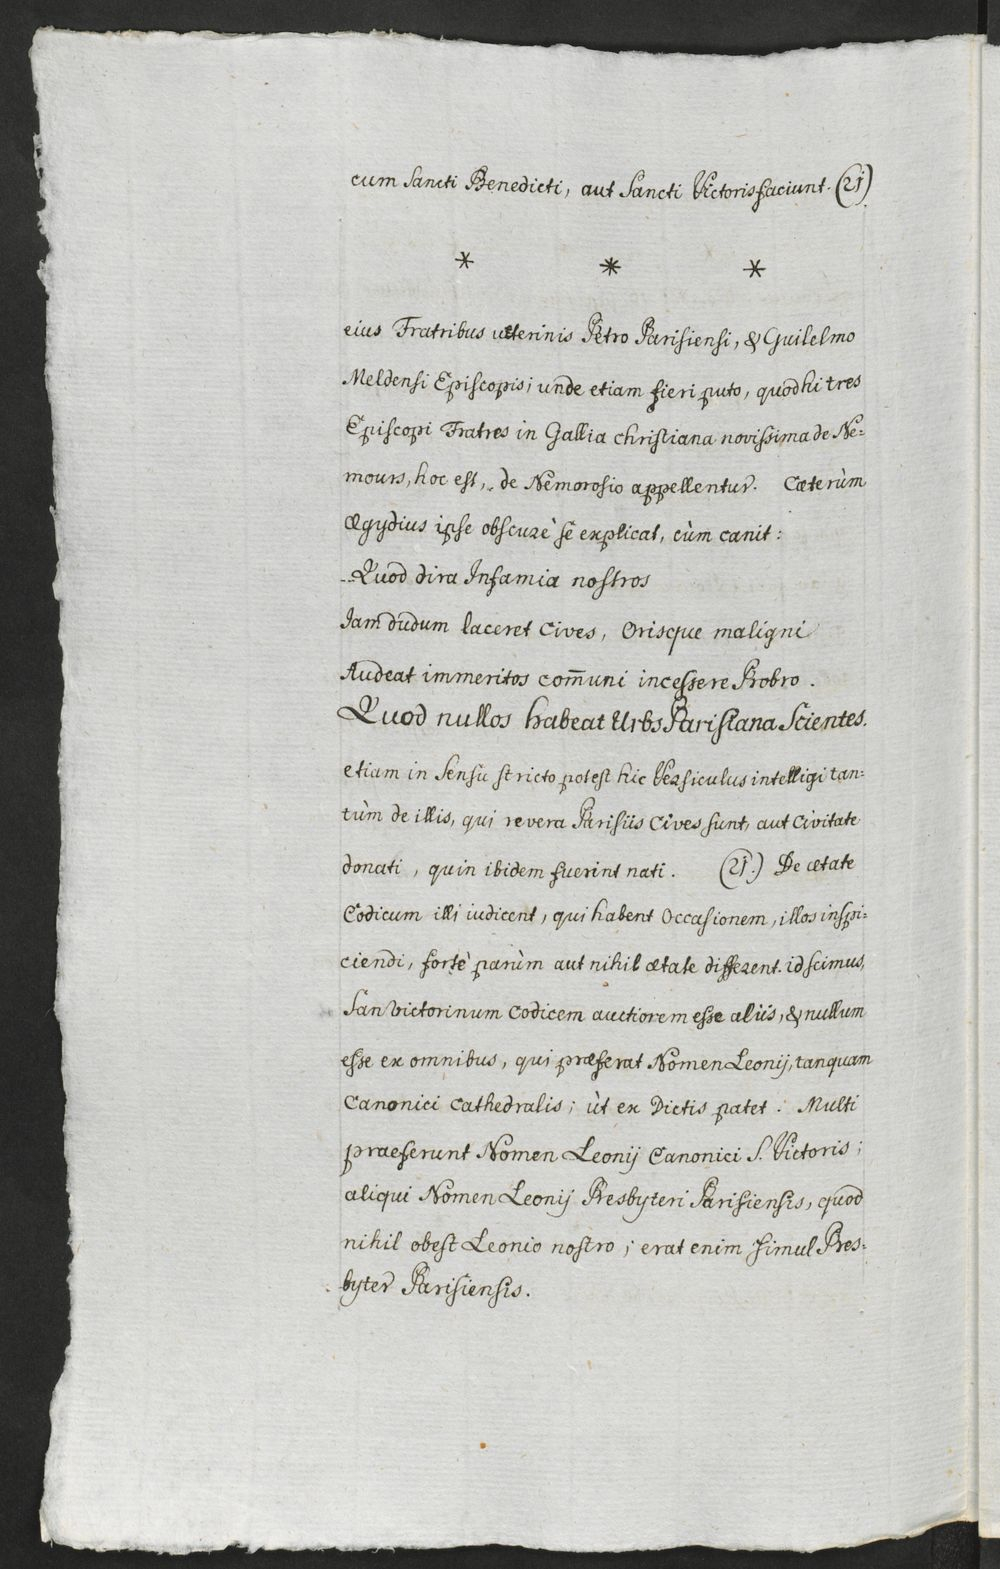 cum Sancti Benedicti, aut Sancti Victoris faciunt. (21)
* * *
eius Fratribus utterinis Petro Parisiensi, & Guilelmo
Meldensi Episcopis; unde etiam fieri puto, quod hi tres
Episcopi Fratres in Gallia christiana novissima de Ne=
mours, hoc est, de Nemorosio appellentur. Cæterùm
Ægydius ipse obscurè se explicat, cùm canit:
Quod dira Infamia nostros
Jam dudum laceret Cives, Orisque maligni
Audeat immeritos com̄uni incessere Probro.
Quod nullos habeat Urbs Parisiana Scientes.
etiam in Sensu stricto potest hic Versiculus intelligi tan=
tùm de illis, qui revera Parisiis Cives sunt, aut Civitate
donati, quin ibidem fuerint nati. (21.) De ætate
Codicum illi iudicent, qui habent Occasionem, illos inspi=
ciendi, fortè parùm aut nihil ætate different. id scimus,
San victorinum codicem auctiorem esse aliis, & nullum
esse ex omnibus, qui præferat Nomen Leonij, tanquam
Canonici Cathedralis; ùt ex Dictis patet. Multi
praeferunt Nomen Leonij Canonici S. Victoris;
aliqui Nomen Leonij Presbyteri Parisiensis, quod
nihil obest Leonio nostro; erat enim simul Pres=
byter Parisiensis.